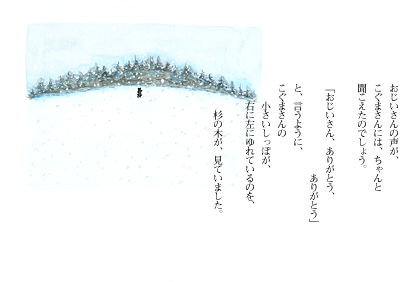 おじいさんの声が、
こぐまさんには、ちゃんと
聞こえたのでしょう。
「おじいさん、ありがとう、
ありがとう」
と、言うように、
こぐまさんの
小さいしっぽが、
右に左にゆれているのを、
杉の木が、見ていました。